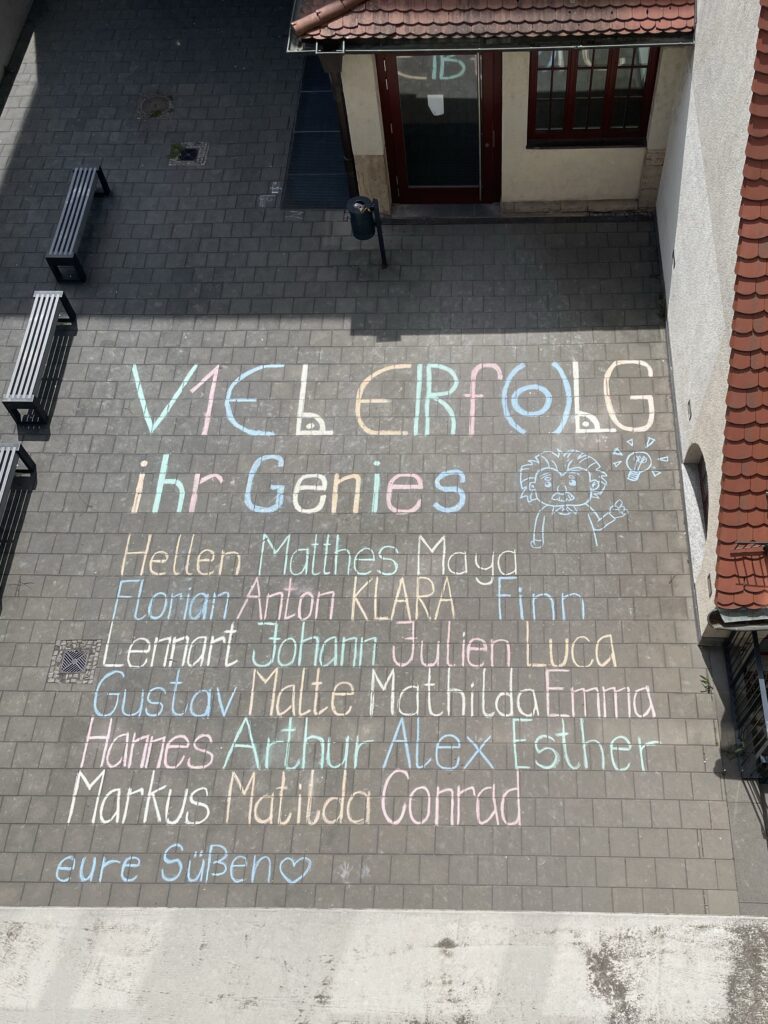 V1EL ERfOLG
ihr Genies
Hellen Matthes Maya
Florian Anton KLARA Finn
Lennart Johann Julien Luca
Gustav Malte Mathilda Emma
Hannes Arthur Alex Esther
Markus Matilda Conrad
eure Süßen♡